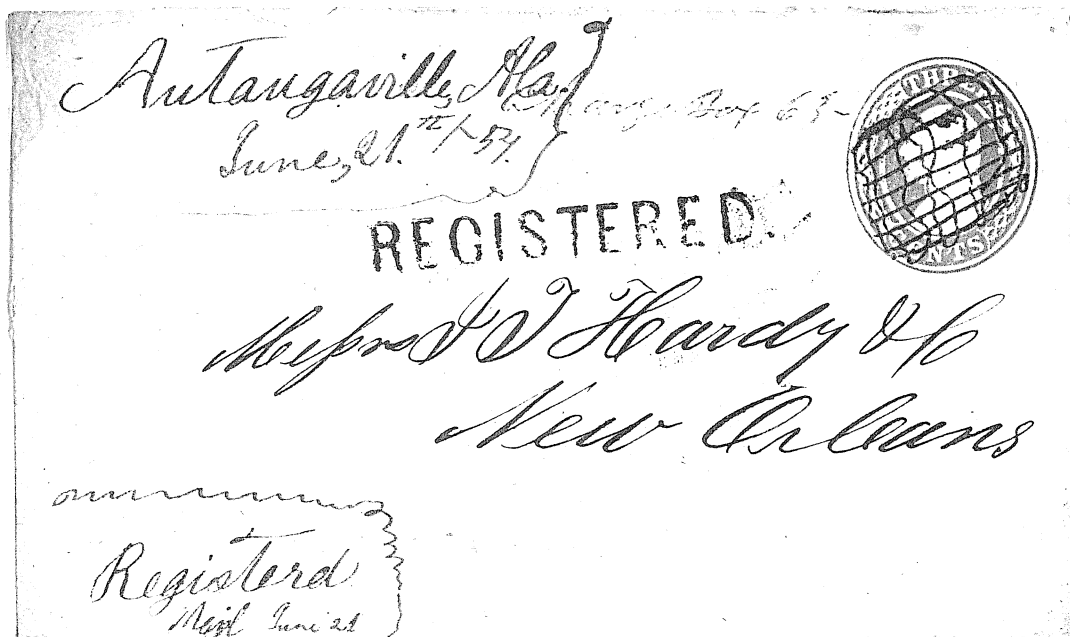 Autaugaville, Ala
Charge Box 63-
June, 21.st/-54.
THREE
CENTS
REGISTERED.
Messrs J J Hardy & C
New Orleans
Registerd
Mail June 21